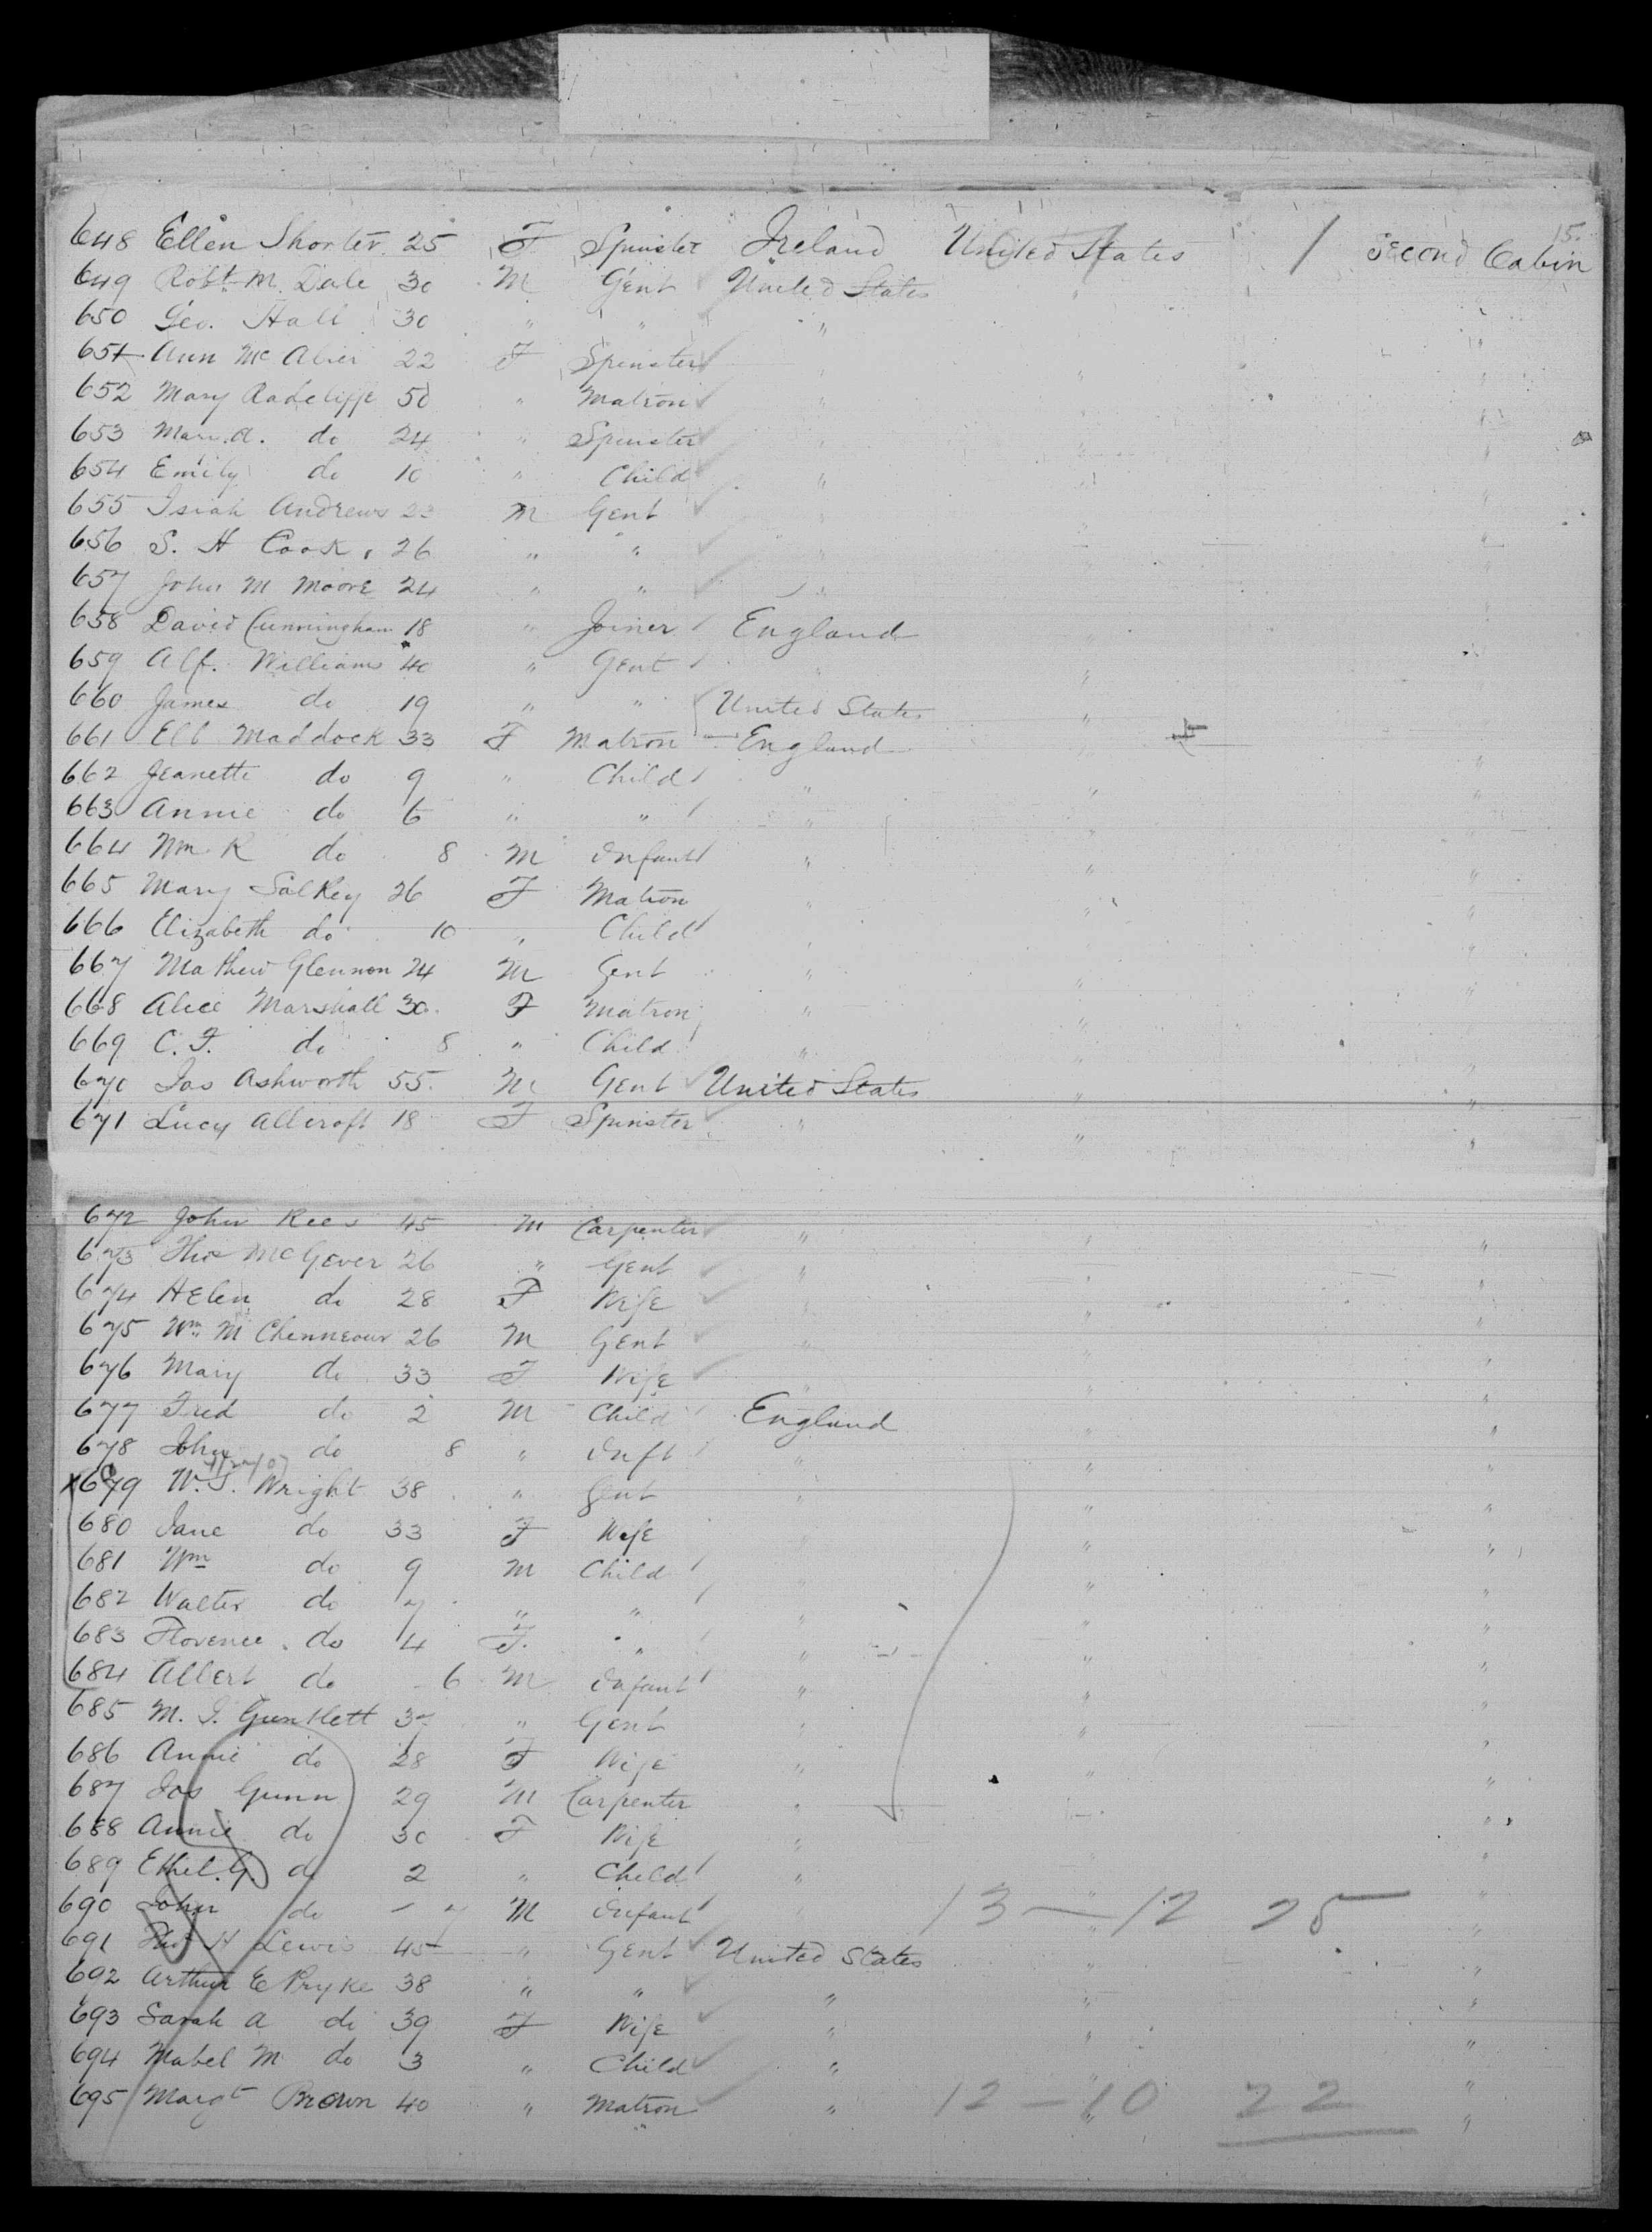 15.
648 Ellen Shorter 25 F Spinster Ireland United States / Second Cabin
649 Robt. M. Dale 30 M Gent United States "
650 Geo. Hall 30 " " "
651 Ann Mc Alier 22 F Spinster " " "
652 Mary Radcliffe 50 " Matron " "
653 Mary. A. do 24 " Spinster "
654 Emily do 10 " Child " " "
655 Isiah Andrews 23 M Gent "
656 S. H Cook, 26 " " " "
657 John M Moore 24 " " "
658 David Cunningham 18 " Joiner England "
659 Alf. Williams 40 " Gent " "
660 James do 19 " " United States "
661 Ell Maddock 33 F Matron England
662 Jeanette do 9 " Child " " "
663 Annie do 6 " " " " "
664 Wm. R do 8 M Infant " " "
665 Mary Salkey 26 F Matron " " "
666 Elizabeth do 10 " Child " " "
667 Mathew Glennon 24 M Gent " " "
668 Alice Marshall 30. F Matron " " "
669 C. F. do 8 " Child " " "
670 Jas Ashworth 55. M Gent United States " "
671 Lucy Allcroft 18 F Spinster " " "
672 John Rees 45 M Carpenter " " "
673 Thos McGever 26 " Gent " " "
674 Helen do 28 F Wife " "
675 Wm. M Chenneour 26 M Gent " " "
676 Mary do 33 F Wife " " "
677 Fred do 2 M Child England " "
678 John do 8 " Inft " " "
X679 W. S. Wright 38 " Gent " " "
680 Jane do 33 F Wife " "
681 Wm do 9 M Child " "
682 Walter do 7 " " " " "
683 Florence do 4 F. " " " "
684 Albert do 6 M Infant " " "
685 M. J. Guntlett " Gent " " "
686 Annie do 28 F Wife " " "
687 Jas Gunn 29 M Carpenter " "
688 Annie do 30 F Wife " "
689 Ethel. G do 2 " Child " "
690 John do - 7 M Infant " " 13 — 12 25
691 Thos H Lewis 45 " Gent United States " "
692 Arthur E Pryke 38 " " " " "
693 Sarah A do 39 F Wife " " "
694 Mabel M do 3 " Child " " "
695 Margt Brown 40 " Matron " " 12 - 10 22